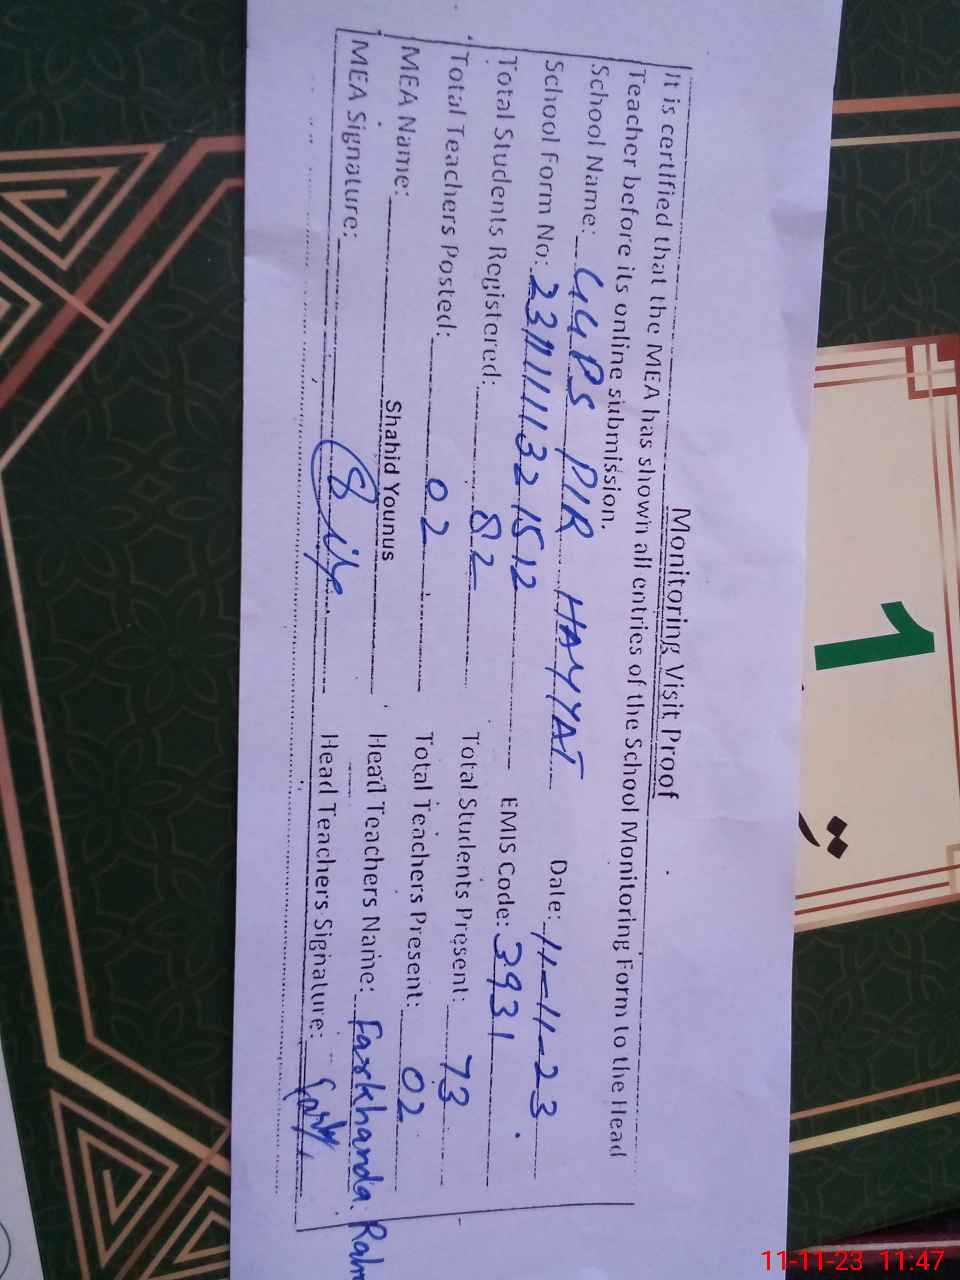 Monitoring Visit Proof
It is certified that the MEA has shown all entries of the School Monitoring Form to the Head
Teacher before its online submission.
School Name: GGPS PIR HAYYAT Date: 11-11-23
School Form No: EMIS Code: 3931
Total Students Registered: 82 Total Students Present: 73
Total Teachers Posted: 02 Total Teachers Present: 02
MEA Name: Shahid Younus Head Teachers Name: Farkhanda
MEA Signature: Head Teachers Signature:
1
11-11-23 11:47